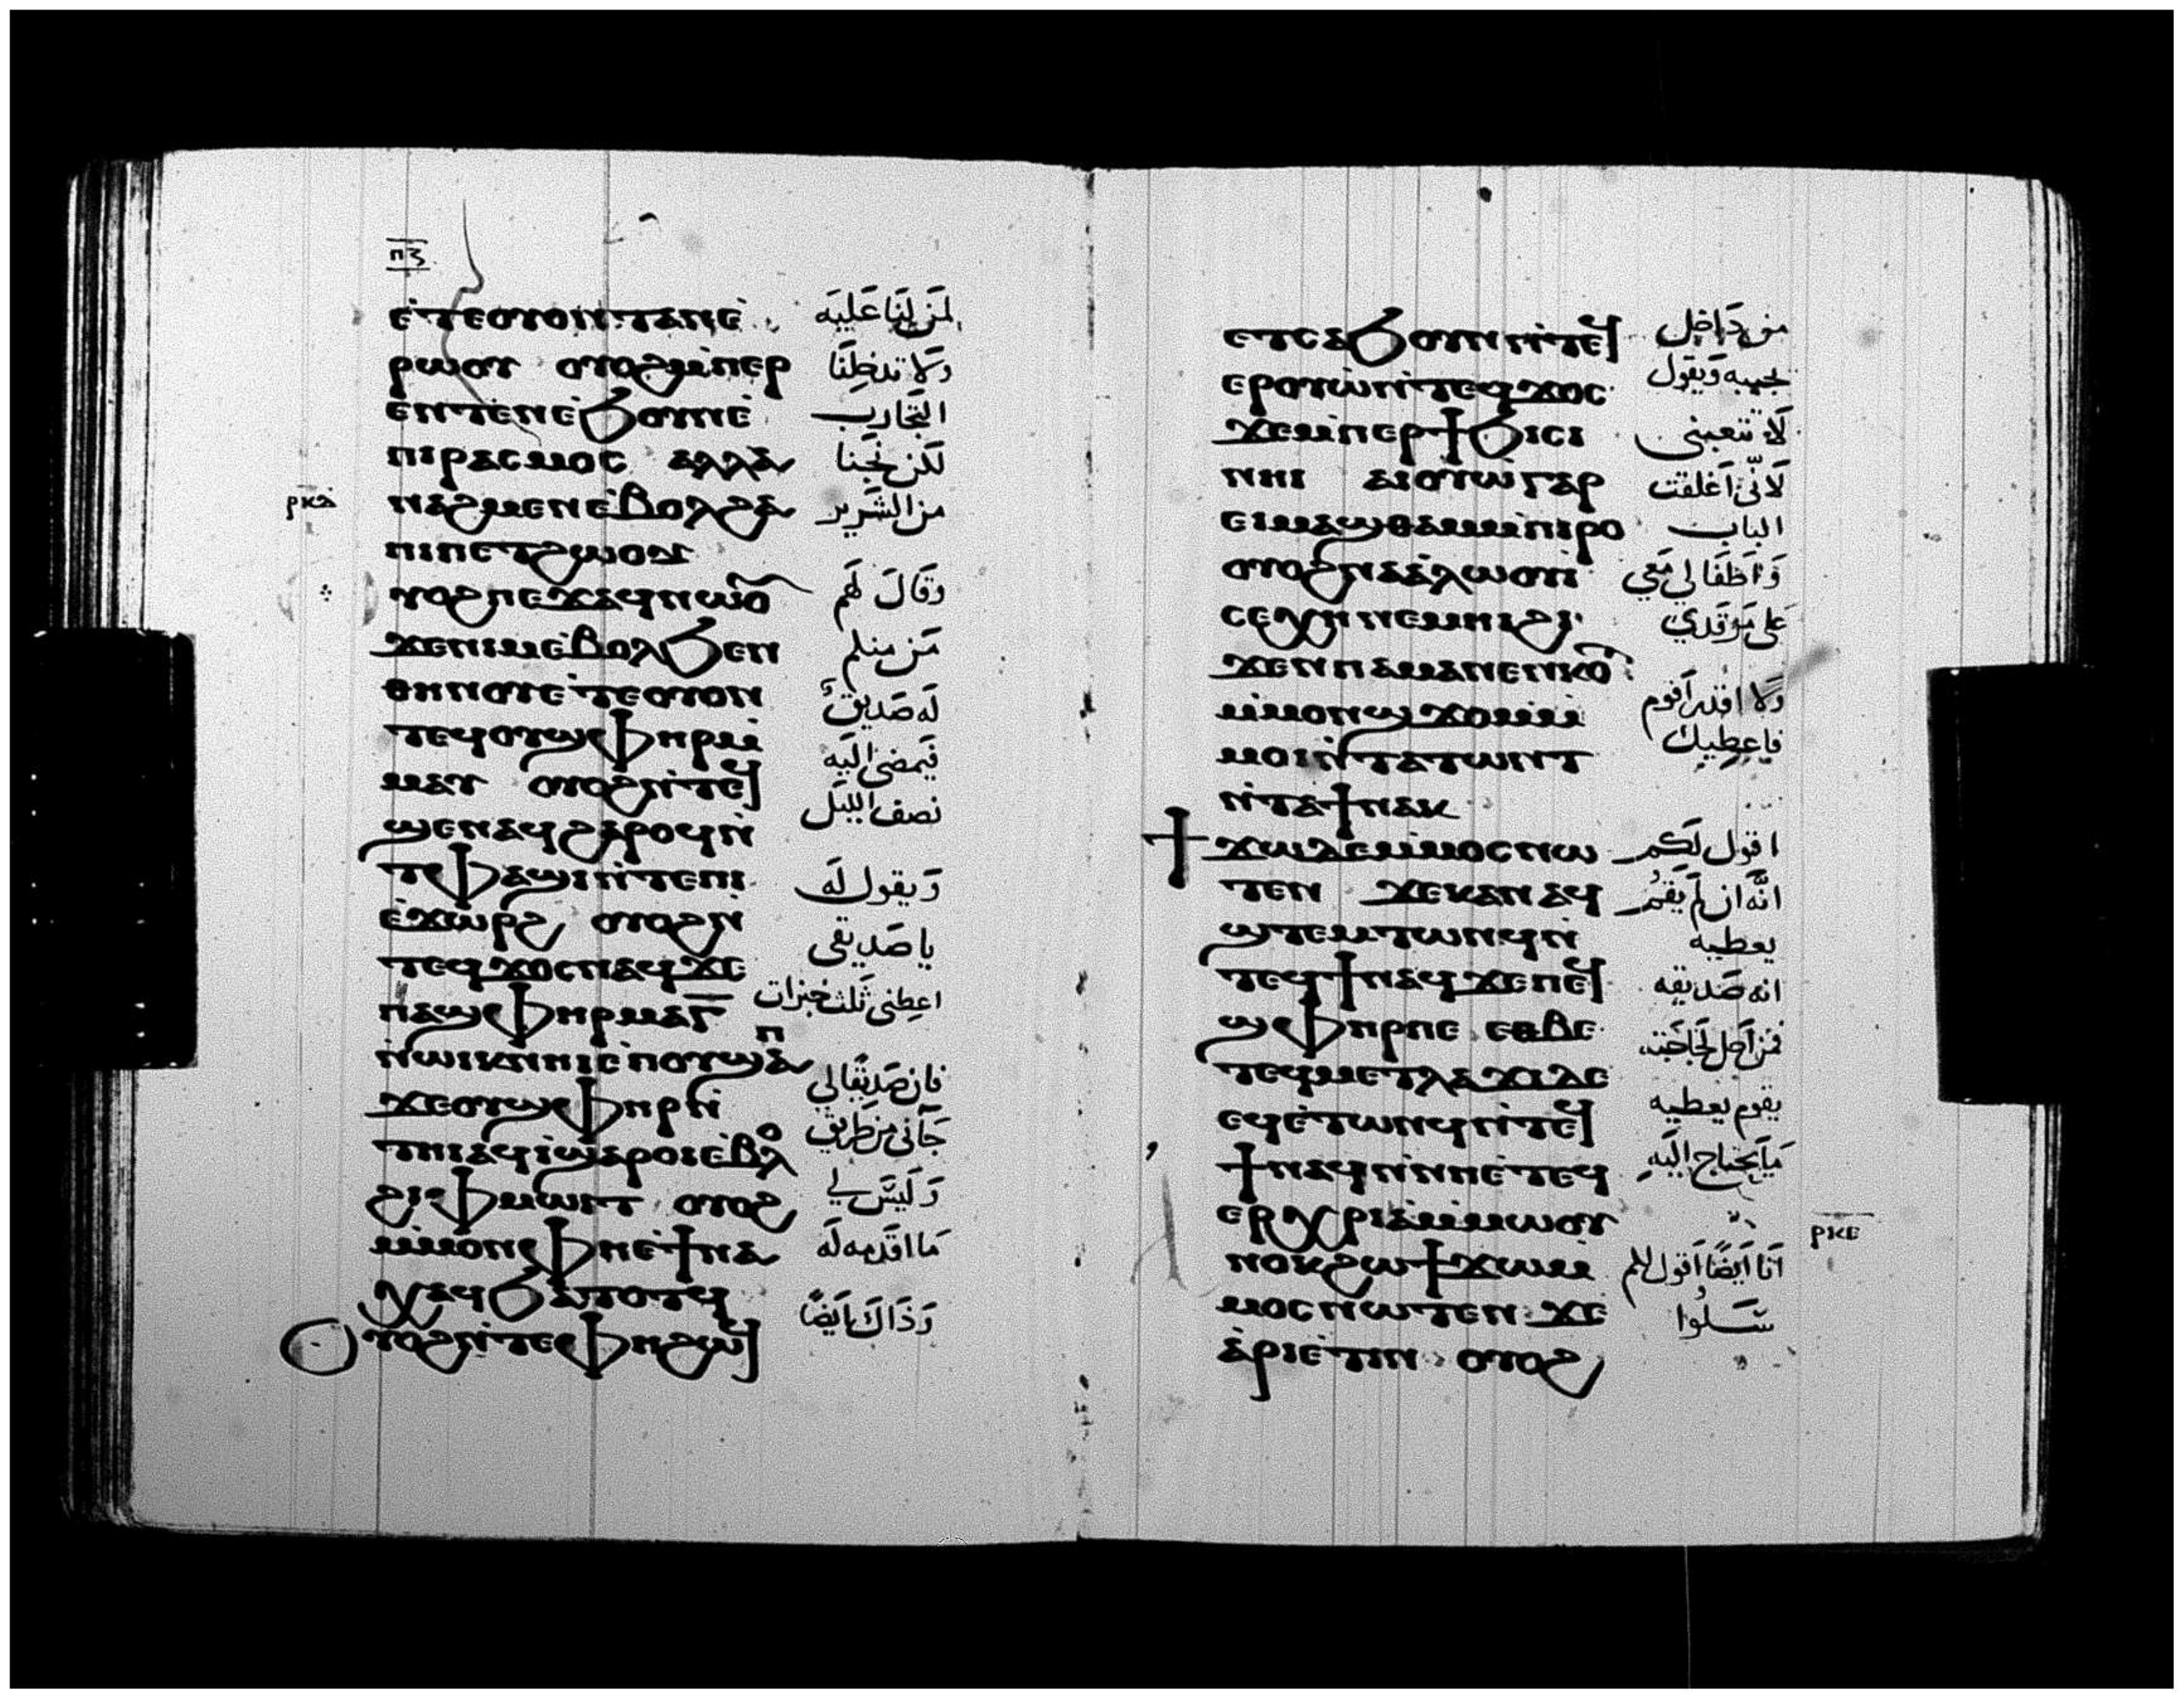 ⲡⲍ
ⲉ̀ⲧⲉⲟⲩⲟⲛⲧⲁⲛⲉ̀
ⲣⲱⲟⲩ ⲟⲩⲟϩⲙ̀ⲡⲉⲣ
ⲉⲛⲧⲉⲛⲉ̀ϧⲟⲩⲛⲉ̀
ⲡⲓⲣⲁⲥⲙⲟⲥ ⲁⲗⲗⲁ
ⲛⲁϩⲙⲉⲛⲉ̀ⲃⲟⲗϩⲁ
ⲡⲓⲡⲉⲧϩⲱⲟⲩ
ⲩⲟϩⲡⲉϫⲁϥⲛⲱⲟ̄
ϫⲉⲛⲓⲙⲉ̀ⲃⲟⲗϧⲉⲛ
ⲑⲏⲛⲟⲩⲉ̀ⲧⲉⲟⲩⲟⲛ
ⲧⲉϥⲟⲩϣⲫⲏⲣⲙ̀
ⲙⲁⲩ ⲟⲩⲟϩⲛ̀ⲧⲉϥ
ϣⲉⲛⲁϥϩⲁⲣⲟϥⲛ̀
ⲧⲫⲁϣⲓⲛ̀ⲧⲉⲡⲓ
ⲉ̀ϫⲱⲣϩ ⲟⲩⲟϩⲛ̀
ⲧⲉϥϫⲟⲥⲛⲁϥϫⲉ
ⲡⲁϣⲫⲏⲣⲙⲁⲅ̄
ⲛ̀ⲱⲓⲕⲛⲏⲓⲉ̀ⲡⲟⲩϣⲁⲡ
ϫⲉⲟⲩϣⲫⲏⲣⲛ̀
ⲧⲏⲓⲁϥⲓ̀ϣⲁⲣⲟⲓⲉ̀ⲃⲟⲗ
ϩⲓⲫⲙⲱⲓⲧ ⲟⲩⲟϩ
ⲙ̀ⲙⲟⲛⲫⲏⲉ̀ϯⲛⲁ
ⲭⲁϥϧⲁⲧⲟⲧϥ
ⲩⲟϩⲛ̀ⲧⲉⲫⲏϩⲱϥ
لمن لنا عليه
ولا تدخلنا
التجارب
لكن نجنا
من الشرير
وقال لهم
من منكم
له صديق
فيمضى اليه
نصف الليل
ويقول له
يا صديقى
اعطنى ثلث خبزات
فان صديقا لي
جانى من طريق
وليس لي
ما اقدمه له
وذاك ايضا
ⲣⲕⲇ
ⲉⲧⲥⲁϧⲟⲩⲛⲛ̀ⲧⲉϥ
ⲉⲣⲟⲩⲱ̀ⲛ̀ⲧⲉϥϫⲟⲥ
ϫⲉⲙ̀ⲡⲉⲣϯϧⲓⲥⲓ
ⲛⲏⲓ ⲁⲓⲟⲩⲱ̀ⲅⲁⲣ
ⲉⲓⲙⲁϣⲑⲁⲙⲙ̀ⲡⲓⲣⲟ
ⲟⲩⲟϩⲛⲁⲁ̀ⲗⲱⲟⲩⲓ̀
ⲥⲉⲭⲏⲛⲉⲙⲏⲓϩⲓ
ϫⲉⲛⲡⲁⲙⲁⲛⲉⲛⲕⲟ̄
ⲙ̀ⲙⲟⲛϣϫⲟⲙⲙ̀
ⲙⲟⲓⲛ̀ⲧⲁⲧⲱⲛⲧ
ⲛ̀ⲧⲁϯⲛⲁⲕ
ϯ ϫⲱⲇⲉⲙ̀ⲙⲟⲥⲛⲱ
ⲧⲉⲛ ϫⲉⲕⲁⲛ ⲁϥ
ϣⲧⲉⲙⲧⲱⲛϥⲛ̀
ⲧⲉϥϯⲛⲁϥϫⲉⲡⲉϥ
ϣⲫⲏⲣⲡⲉ ⲉⲑⲃⲉ
ⲧⲉϥⲙⲉⲧⲗⲁϫⲓⲇⲉ
ⲉϥⲉ̀ⲧⲱⲛϥⲛ̀ⲧⲉϥ
ϯⲛⲁϥⲛ̀ⲛⲏⲉ̀ⲧⲉϥ
ⲉⲣⲭⲣⲓⲁⲙ̀ⲙⲱⲟⲩ
ⲛⲟⲕϩⲱϯϫⲱⲙ̀
ⲙⲟⲥⲛⲱⲧⲉⲛ ϫⲉ
ⲁ̀ⲣⲓⲉ̀ⲧⲓⲛ ⲟⲩⲟϩ
من داخل
يجيبه ويقول
لا تتعبنى
لانى اغلقت
الباب
واطفالي معي
على مرقدي
ولا اقدر اقوم
فاعطيك
اقول لكم
انه ان لم يقم
يعطيه
انه صديقه
فمن اجل لجاجته
يقوم يعطيه
ما يحتاج اليه
انا ايضا اقول لكم
سلوا
ⲣⲕⲉ